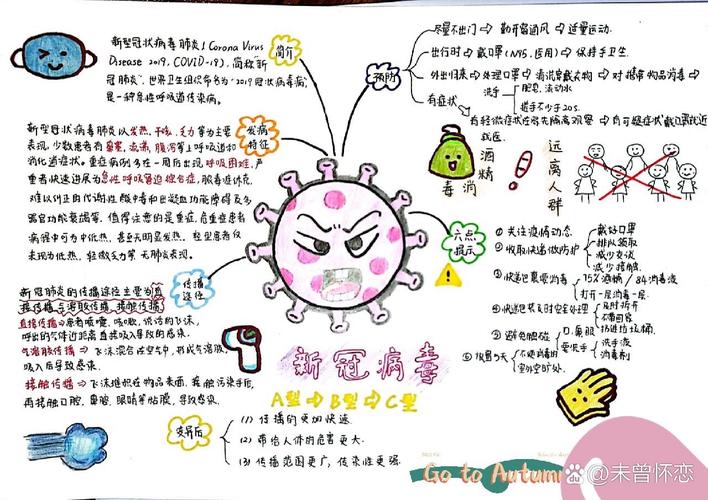 新型冠状病毒肺炎(Corona Virus
Disease 2019, COVID-19), 简称"新
冠肺炎", 世界卫生组织命名为"2019冠状病毒病",
是一种急性呼吸道传染病。
简介
新型冠状病毒肺炎以发热、干咳、乏力等为主要
表现,少数患者有鼻塞、流涕、腹泻等上呼吸道和
消化道症状。重症病例多在一周后出现呼吸困难,严
重者快速进展为急性呼吸窘迫综合征、脓毒症休克、
难以纠正的代谢性酸中毒和出凝血功能障碍及多
器官功能衰竭等。值得注意的是重症、危重症患者
病程中可为中低热,甚至无明显发热。轻型患者仅
表现为低热、轻微乏力等,无肺炎表现。
发病
特征
新冠肺炎的传播途径主要为直
接传播、气溶胶传播、接触传播
直接传播⇒患者喷嚏、咳嗽、说话的飞沫,
呼出的气体近距离直接吸入导致的感染。
气溶胶传播⇒飞沫混合在空气中,形成气溶胶,
吸入后导致感染。
接触传播⇒飞沫沉积在物品表面,接触污染手后,
再接触口腔、鼻腔、眼睛等粘膜,导致感染。
传播
途径
预防
尽量不出门→勤开窗通风→适量运动.
出行时→戴口罩(N95,医用)→保持手卫生.
外出归来→处理口罩→清洗量衣物→对携带物品消毒
洗手
肥皂、流动水
搓手不少于20s.
有症状
有轻微症状在家先隔离观察→有可疑症状戴口罩就近
就医.
酒精
消毒
远离人群
六点
提示
① 关注疫情动态
② 收取快递做防护
戴好口罩
排队领取
减少交谈
减少接触.
③ 快递包裹要消毒
75%酒精/84消毒液
打开一层消毒一层.
④快递包装及时安全处理
及时拆开
不带回家
扔进垃圾桶.
⑤ 避免触碰
口、鼻、眼
要洗手
洗手液
消毒剂
新冠病毒
A型⇒B型⇒C型
变异后
(1) 传播的更加快速.
(2) 带给人体的危害更大.
(3) 传播范围更广,传染性更强.
Go to Autumn
@未曾怀恋